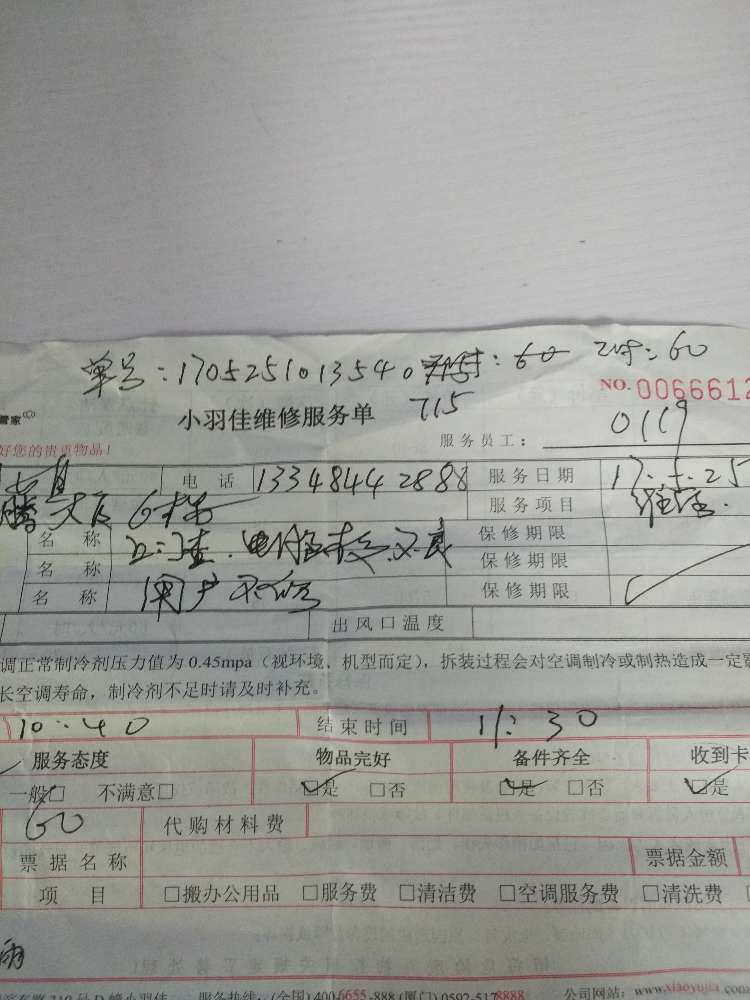 单号：1705251013540 60 60
NO. 0066612
管家
小羽佳维修服务单 715
好您的贵重物品！
服务员工： 0119
电话 13348442888 服务日期 17.5.25
服务项目 维修
名称 保修期限
名称 保修期限
名称 用户不修 保修期限
出风口温度
调正常制冷剂压力值为 0.45mpa（视环境、机型而定），拆装过程会对空调制冷或制热造成一定
长空调寿命，制冷剂不足时请及时补充。
10:40 结束时间 11:30
服务态度 物品完好 备件齐全 收到卡
一般□ 不满意□ □是 □否 □是 □否 □是
60 代购材料费
票据名称 票据金额
项目 □搬办公用品 □服务费 □清洁费 □空调服务费 □清洗费
雨
服务热线：(全国) 400-6655-888 (厦门) 0592-5178888 公司网站：www.xiaoyujia.com